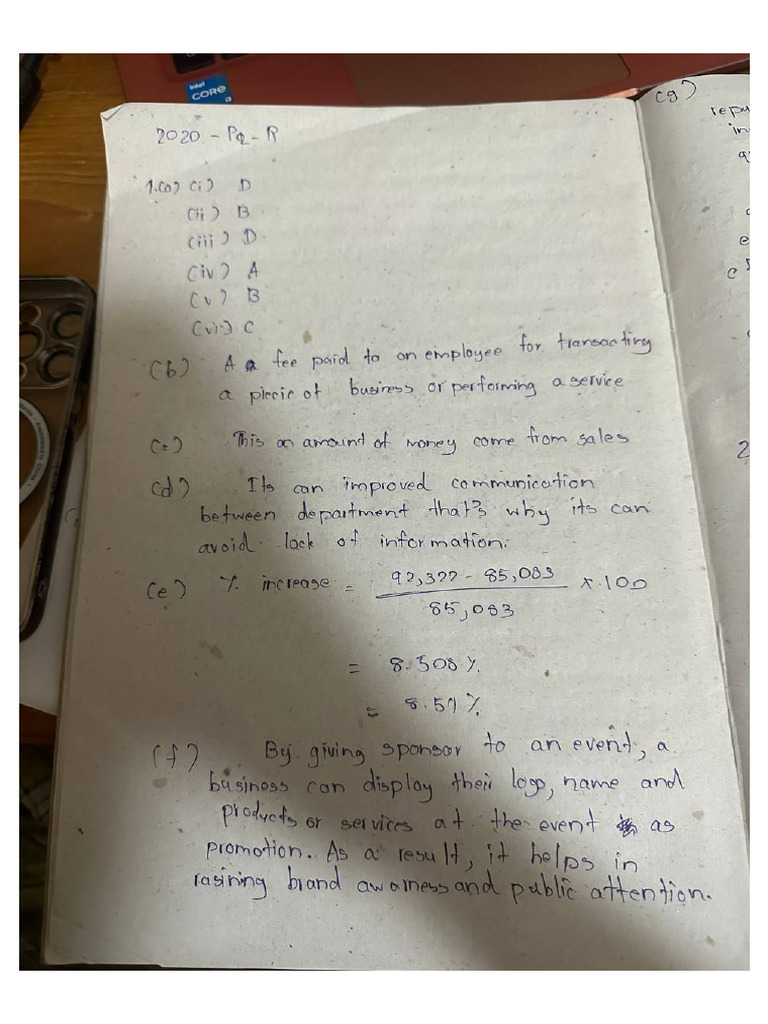 intel
CORE
i3
2020 - PQ - R
1.(a) (i) D
(ii) B
(iii) D
(iv) A
(v) B
(vi) C
(b) A fee paid to an employee for transacting
a piecic of business or performing a service
(c) This an amount of money come from sales
(d) Its can improved communication
between department that's why its can
avoid lack of information.
(e) % increase = 92,322 - 85,083 / 85,083 × 100
= 8.508 %
= 8.51 %
(f) By giving sponsor to an event, a
business can display their logo, name and
products or services at the event as
promotion. As a result, it helps in
rasining brand awarness and public attention.
(g)
repu
in
e
2